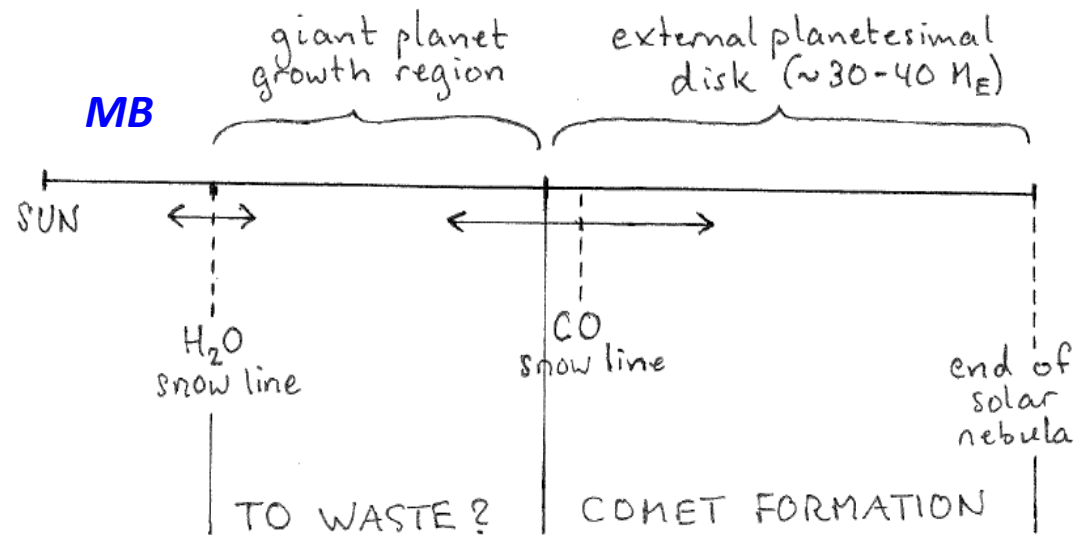 giant planet
growth region
external planetesimal
disk (~30-40 ME)
MB
SUN
H2O
snow line
CO
snow line
end of
solar
nebula
TO WASTE?
COMET FORMATION